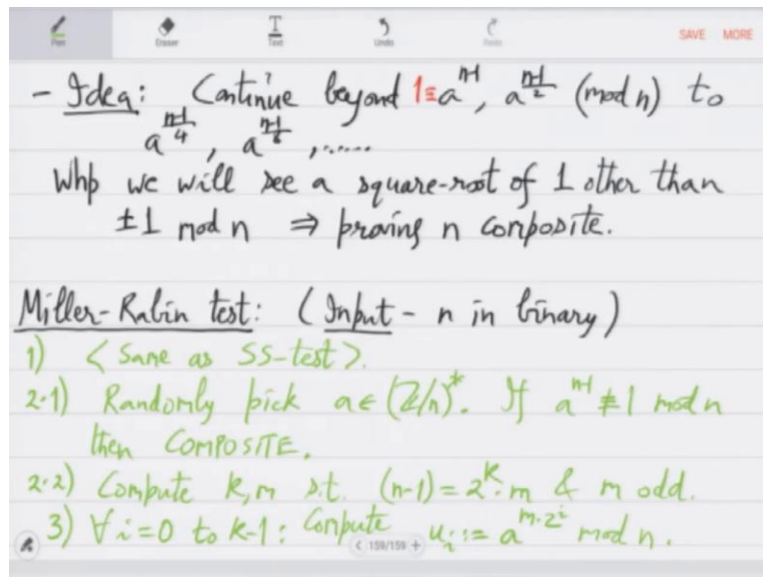 Pen Eraser Text Undo Redo SAVE MORE
- Idea: Continue beyond 1≡a^{n-1}, a^{\frac{n-1}{2}} (mod n) to
a^{\frac{n-1}{4}}, a^{\frac{n-1}{8}}, ......
Whp we will see a square-root of 1 other than
±1 mod n ⇒ proving n composite.
Miller-Rabin test: (Input - n in binary)
1) <Same as SS-test>.
2.1) Randomly pick a∈(ℤ/n)*. If a^{n-1} ≢ 1 mod n
then COMPOSITE.
2.2) Compute k,m s.t. (n-1)=2^k.m & m odd.
3) ∀i=0 to k-1: Compute u_i := a^{m.2^i} mod n.
< 159/159 +